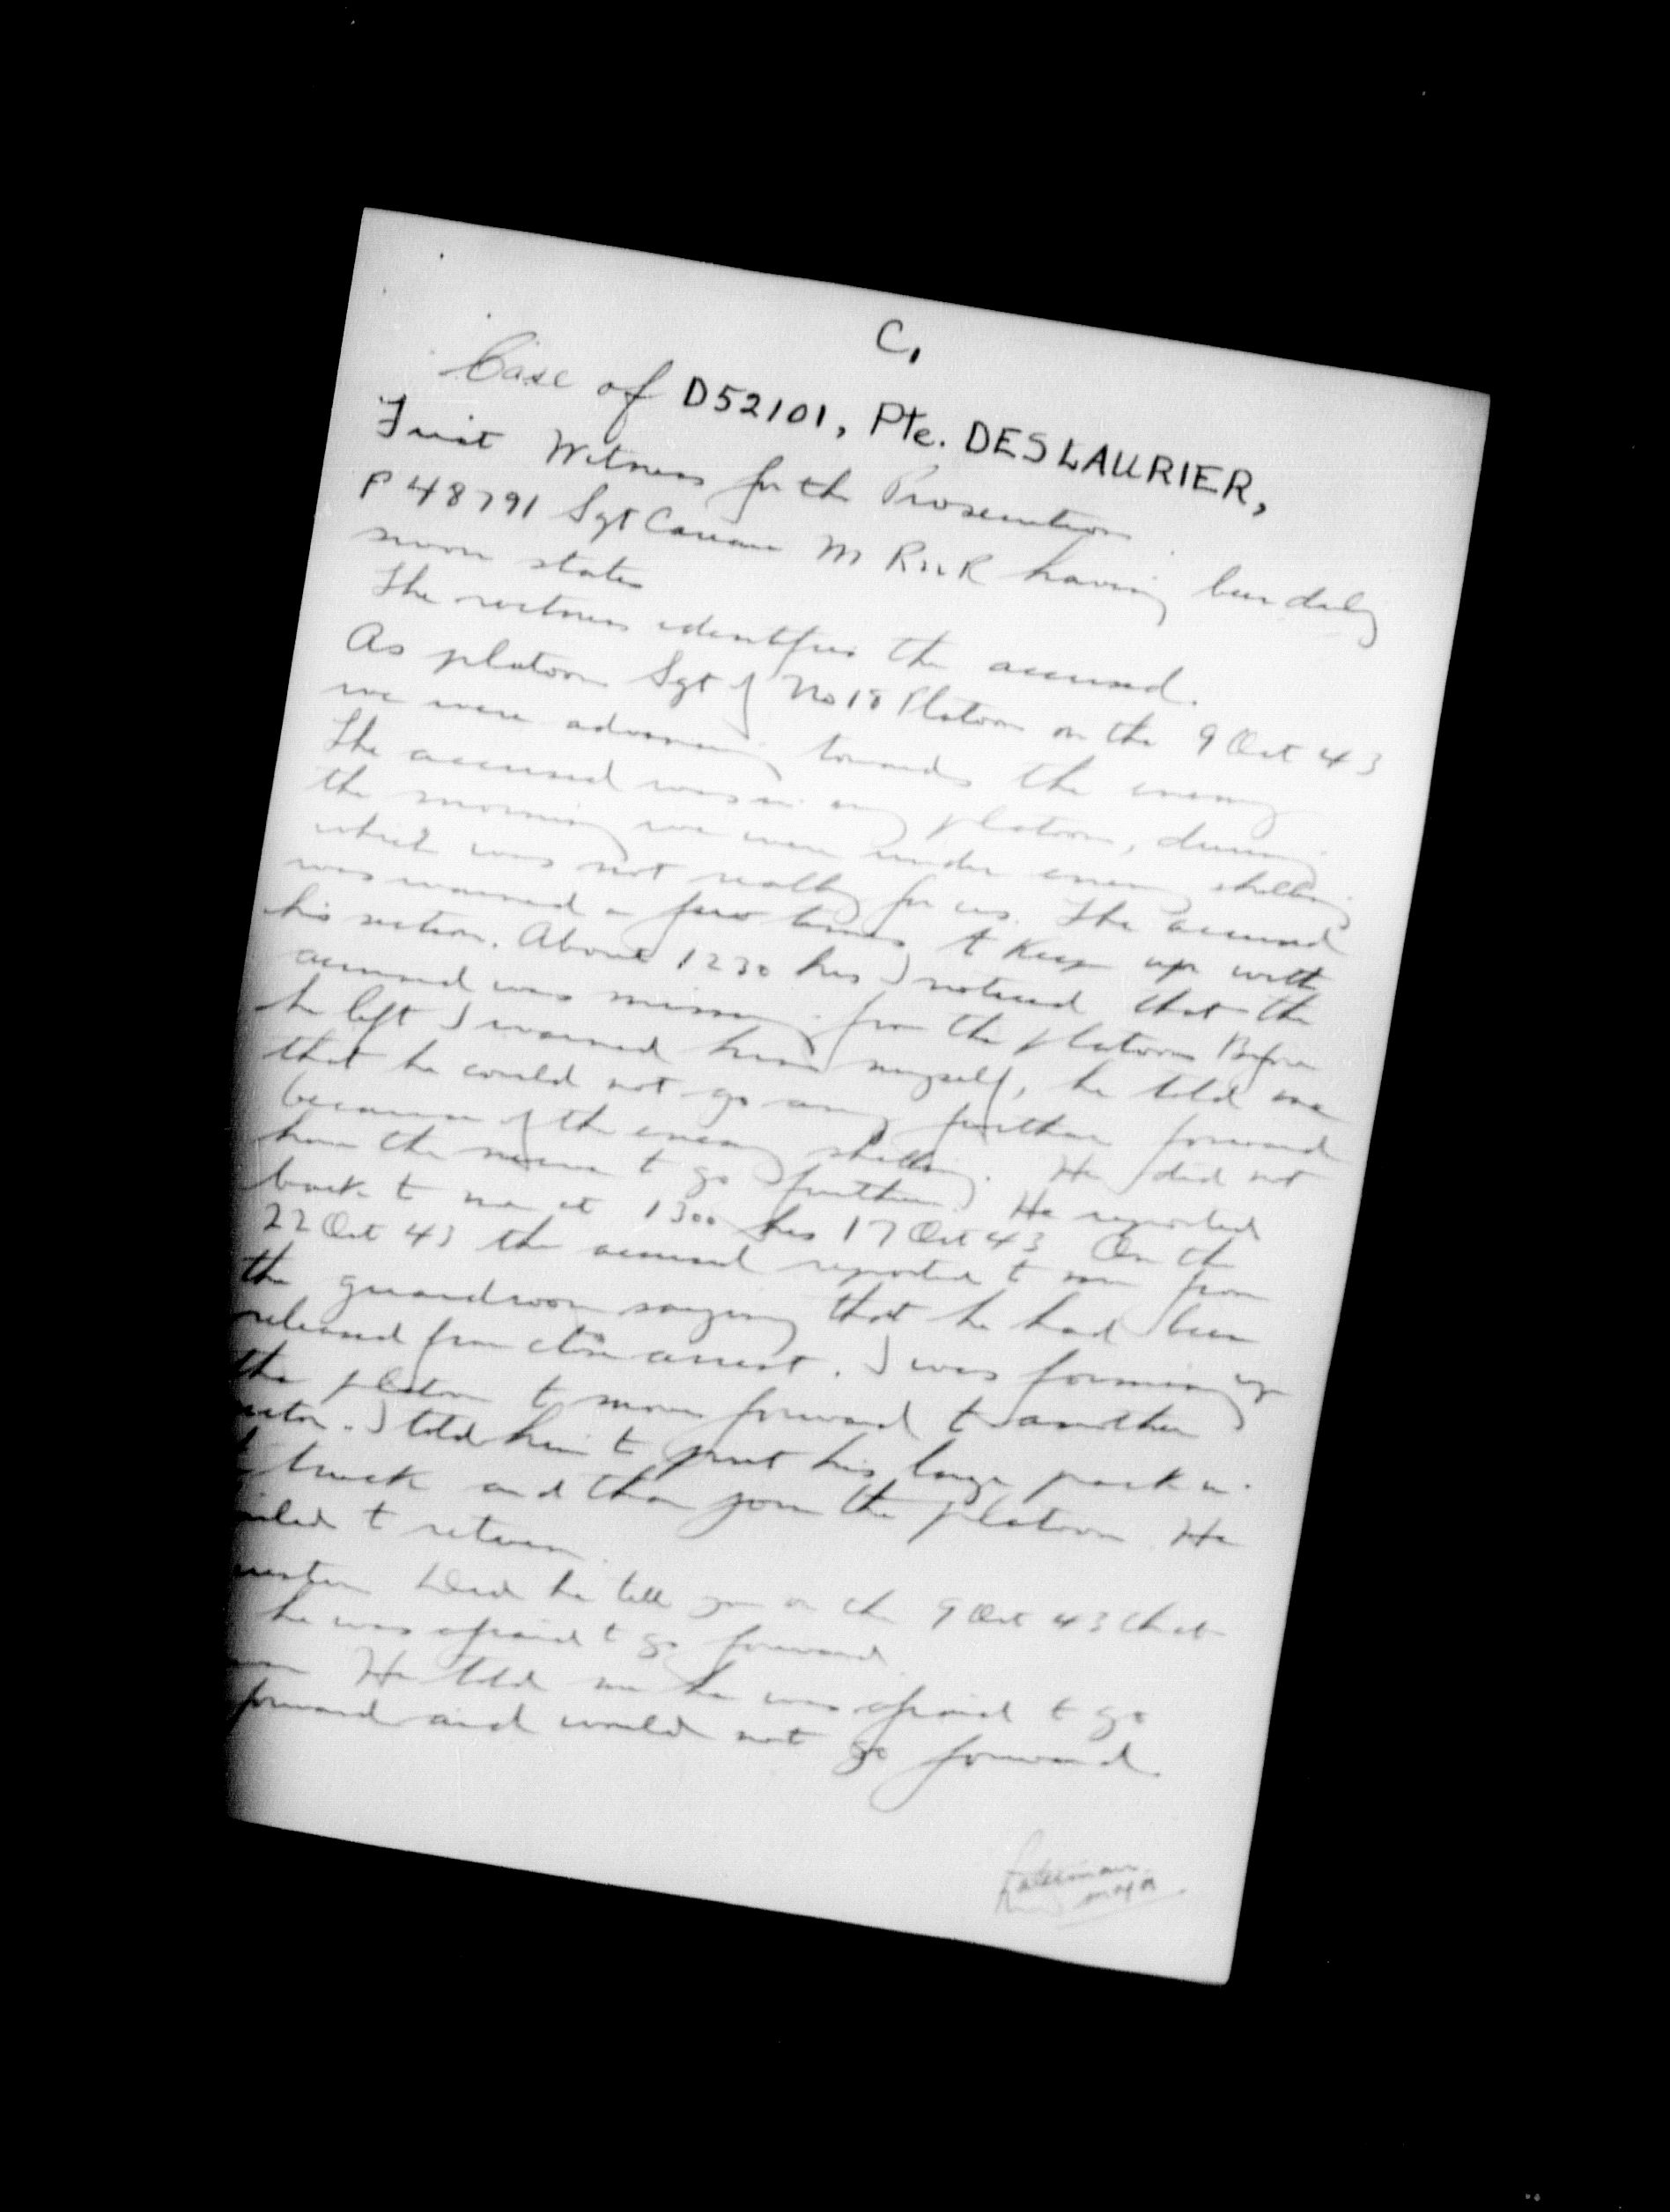 C.
Case of D52101, Pte. DESLAURIER,
First Witness for the Prosecution
P 48791 Sgt M R22R having been duly
sworn states
The witness identifies the accused.
As platoon Sgt of No 18 Platoon on the 9 Oct 43
we were advancing towards the enemy
The accused was in my platoon, during
the morning we were under enemy shelling
which was not really for us. The accused
was warned a few times to keep up with
his section. About 1230 hrs I noticed that the
accused was missing from the platoon Before
he left I warned him myself, he told me
that he could not go any further forward
because of the enemy shelling. He did not
have the nerve to go further. He reported
back to me at 1300 hrs 17 Oct 43 On the
22 Oct 43 the accused reported to me from
the guardroom saying that he had been
released from close arrest. I was forming up
the platoon to move forward to another
sector. I told him to put his large pack in
truck and then join the platoon He
failed to return.
Question Did he tell you on the 9 Oct 43 that
he was afraid to go forward
He told me he was afraid to go
forward and would not go forward.
major